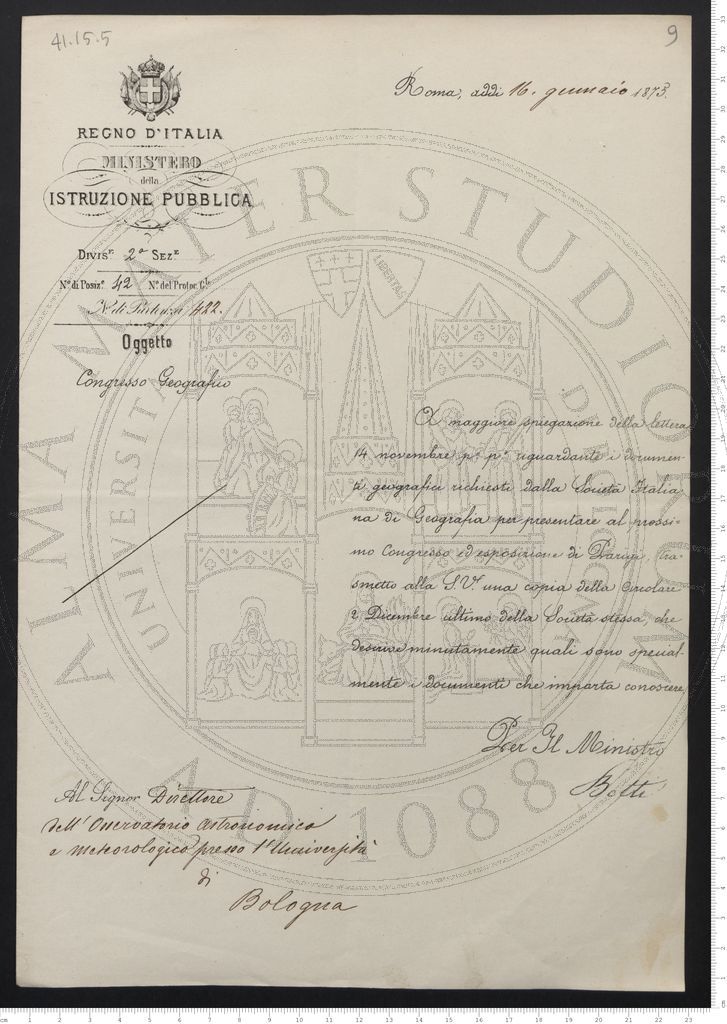 41.15.5
9
Roma, addì 16. gennaio 1873.
REGNO D'ITALIA
MINISTERO
della
ISTRUZIONE PUBBLICA
Divis.e 2a Sez.e
No. di Posiz.e 42 No. del Protoc. Gle
No. di Partenza 422.
Oggetto
Congresso Geografico
A maggiore spiegazione della lettera
14 novembre p.o p.o riguardante i documen-
ti geografici richiesti dalla Società Italia
na di Geografia per presentare al prossi-
mo Congresso ed esposizione di Parigi, tra-
smetto alla S.V.a una copia della Circolare
2 Dicembre ultimo della Società stessa, che
descrive minutamente quali sono special-
mente i documenti che importa conoscere.
Per Il Ministro
Al Signor Direttore
dell'Osservatorio astronomico
e meteorologico presso l'Università
di
Bologna
ALMA MATER STUDIORUM
UNIVERSITÀ DI BOLOGNA
LIBERTAS
A.D. 1088